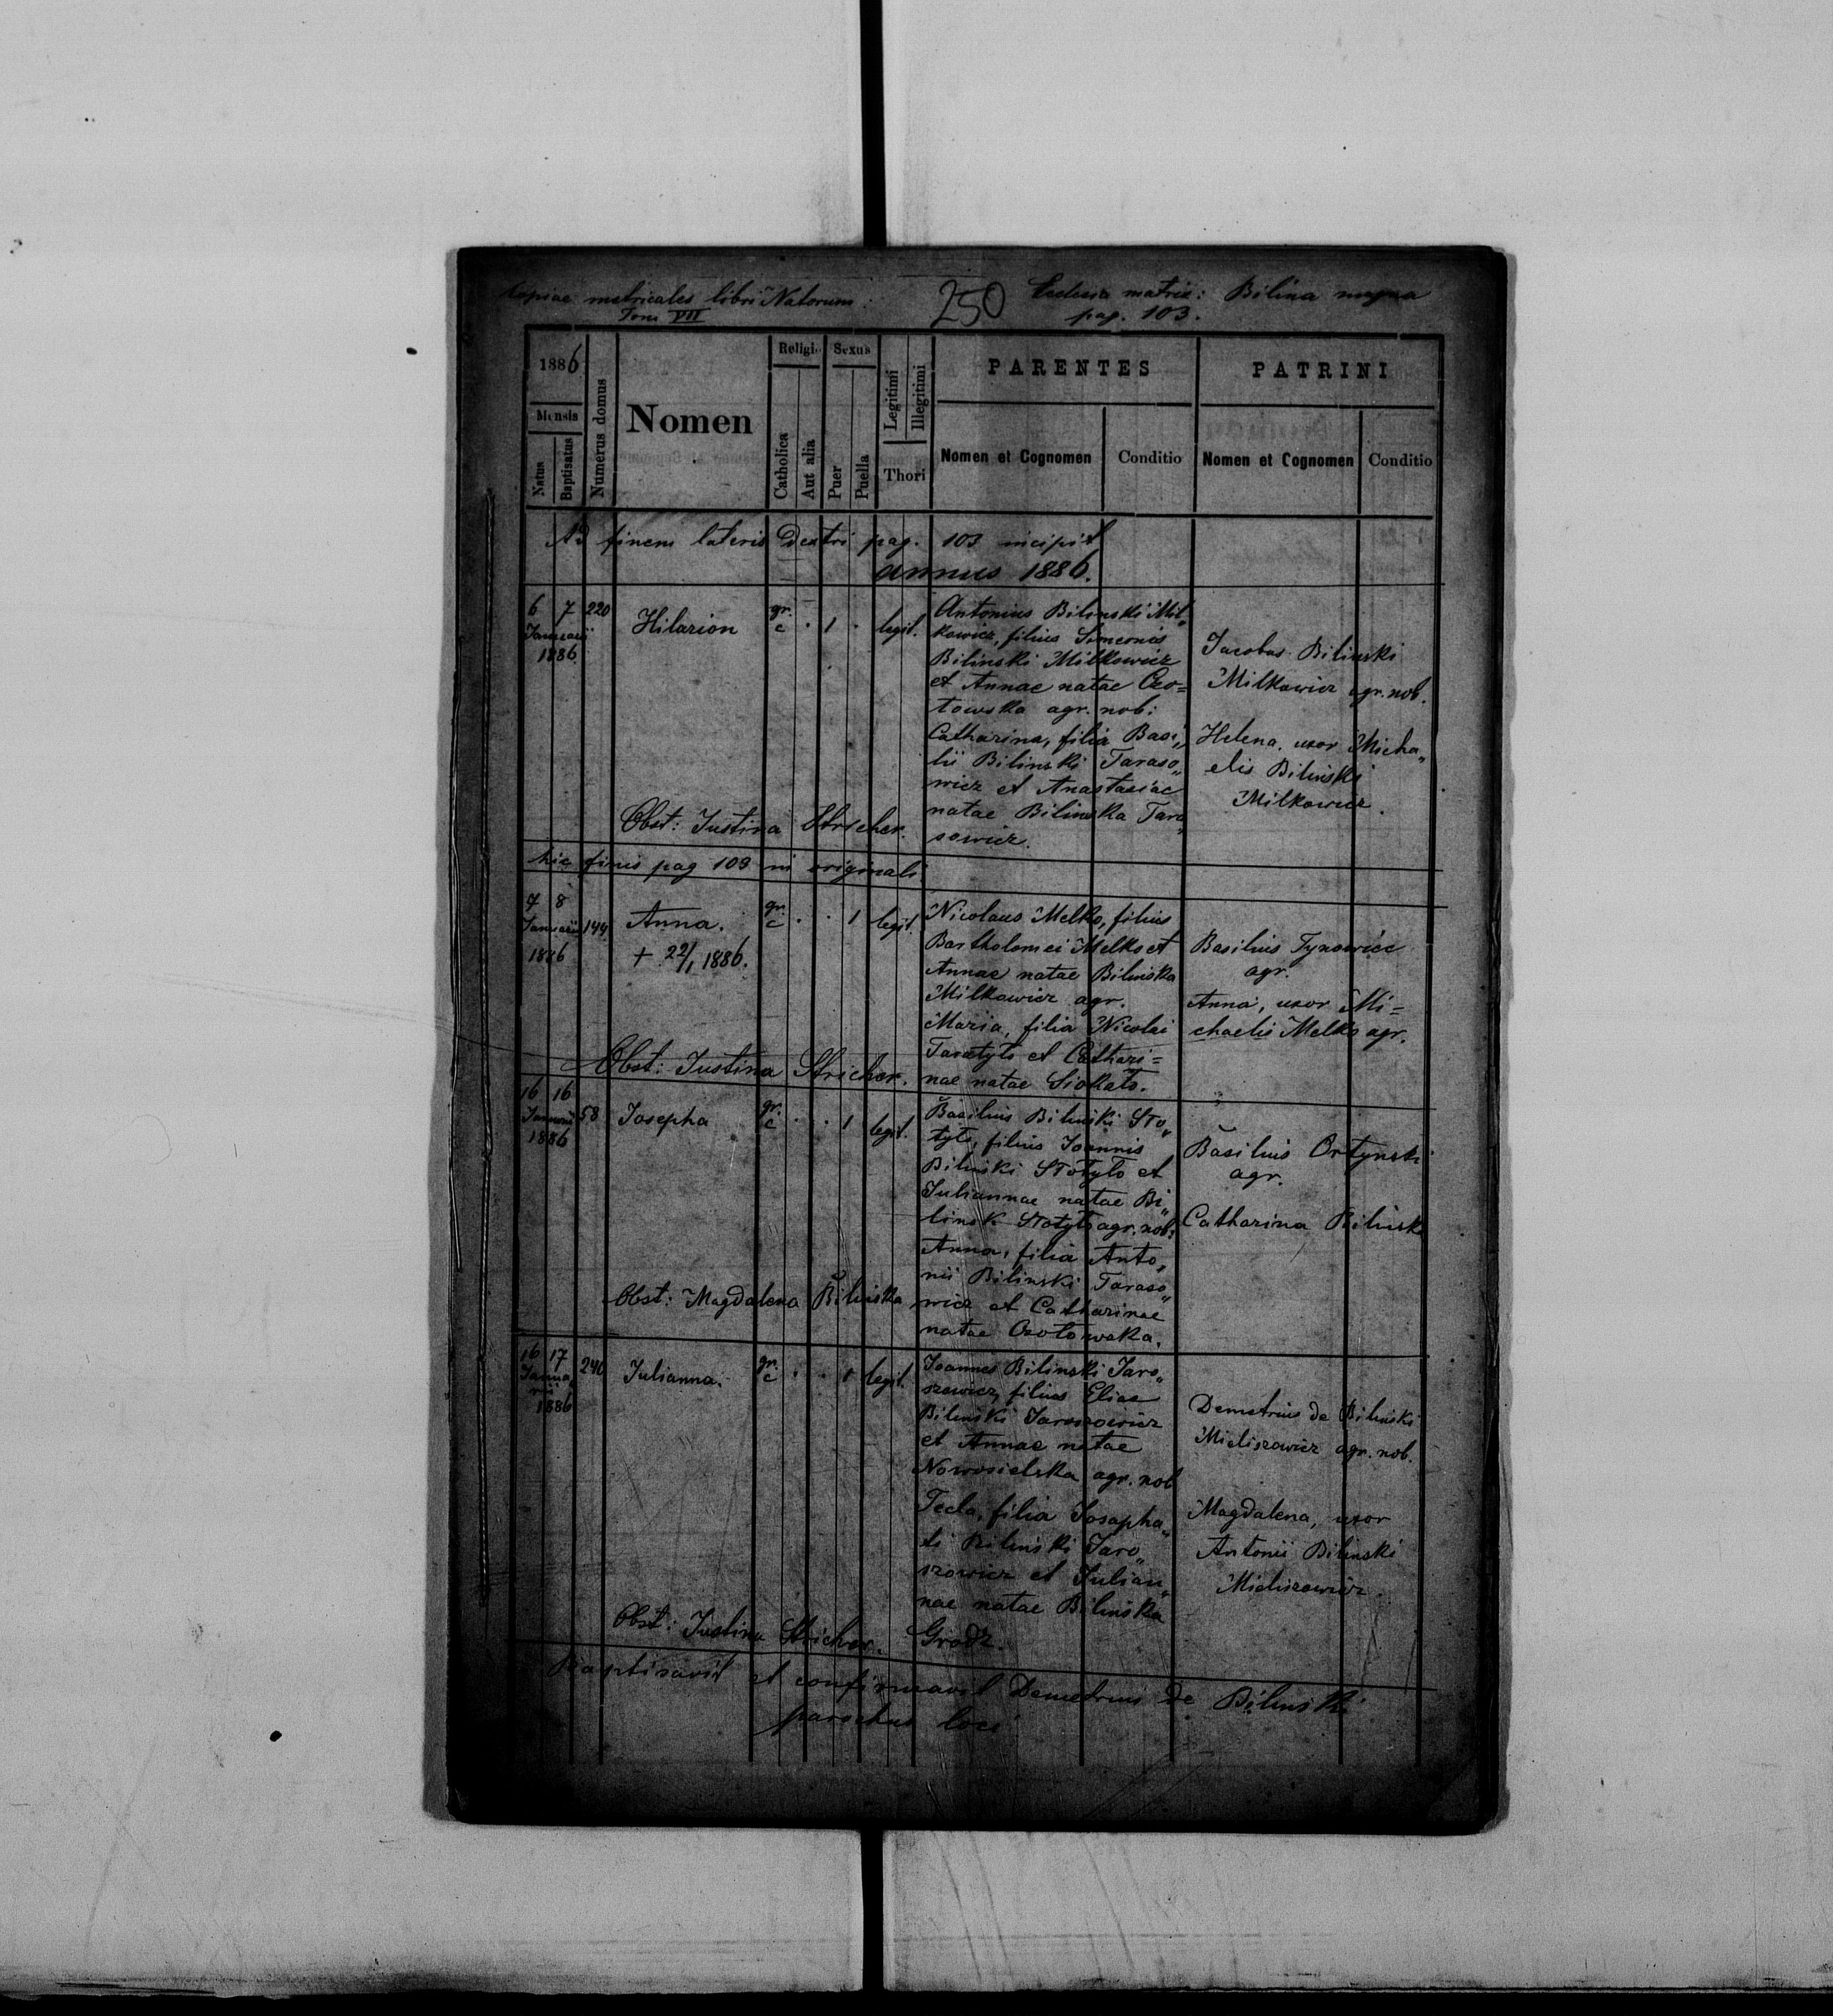 Copiae metricales libri Natorum:
Tom VII
250
Ecclesia matrix: Bilina magna
pag. 103.
1886
Mensis
Natus
Baptisatus
Numerus domus
Nomen
Religi
Catholica
Aut alia
Sexus
Puer
Puella
Legitimi
Illegitimi
Thori
PARENTES
Nomen et Cognomen
Conditio
PATRINI
Nomen et Cognomen
Conditio
Ad finem lateris dextri pag. 103 incipit
annus 1886.
6 7 220
Januarii
1886
Hilarion
gr.
c
1
legit.
Antonius Bilinski Mil„
kowicz, filius Simeonis
Bilinski Milkowicz
et Annae natae Czo=
towska agr. nob:
Catharina, filia Basi„
lii Bilinski Taraso„
wicz et Anastasiae
natae Bilinska Tara„
sowicz.
Jacobus Bilinski
Milkowicz agr. nob.
Helena, uxor Micha„
elis Bilinski
Milkowicz.
Obst: Justina Stricher.
hic finis pag 103 in originali
7 8
Januarii 149
1886
Anna.
+ 22/1 1886.
gr.
c
1
legit.
Nicolaus Melko, filius
Bartholomei Melko et
Annae natae Bilinska
Milkowicz agr.
Maria, filia Nicolai
Taratyto et Cathari=
nae natae Siokato.
Basilius Tynowicz
agr.
Anna, uxor Mi=
chaelis Melko agr.
Obst: Justina Stricher.
16 16
Januarii 58
1886
Josepha
gr.
c
1
legit.
Basilius Bilinski Sto„
tyto, filius Joannis
Bilinski Stotyto et
Juliannae natae Bi„
linsk Stotyto agr. nob:
Anna, filia Anto„
nii Bilinski Taraso„
wicz et Catharinae
natae Czotowska.
Basilius Ortynski
agr.
Catharina Bilinska
Obst: Magdalena Bilinska
16 17 240
Janua„
rii
1886
Julianna.
gr.
c
1
legit.
Joannes Bilinski Jaro„
szowicz, filius Eliae
Bilinski Jaroszowicz
et Annae natae
Nowosielska agr. nob
Tecla, filia Josapha„
ti Bilinski Jaro„
szowicz et Julian„
nae natae Bilinska
Grodz.
Demetrius de Bilinski
Mieliszowicz agr. nob.
Magdalena, uxor
Antonii Bilinski
Mieliszowicz.
Obst: Justina Stricher.
Baptisavit et confirmavit Demetrius de Bilinski
parochus loci